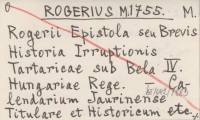 ROGERIUS M.1755. M.
Rogerii Epistola seu Brevis
Historia Irruptionis
Tartaricae sub Bela IV.
Hungariae Rege. Ca-
lendarium Jaurinense
Titulare et Historicum etc.